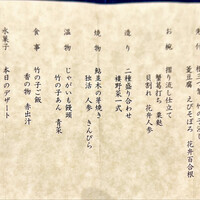 煮豆腐 えびそぼろ 花弁百合根
お椀
摺り流し仕立て
蟹葛打ち 粟麩
貝割れ 花弁人参
造り
二種盛り合わせ
嬉野菜一式
焼物
鮎並木の芽焼き
独活 人参 きんぴら
温物
じゃがいも饅頭
竹の子あん 青菜
食事
竹の子ご飯
香の物 赤出汁
水菓子
本日のデザート